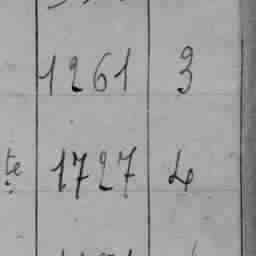 1261 3
te 1727 4